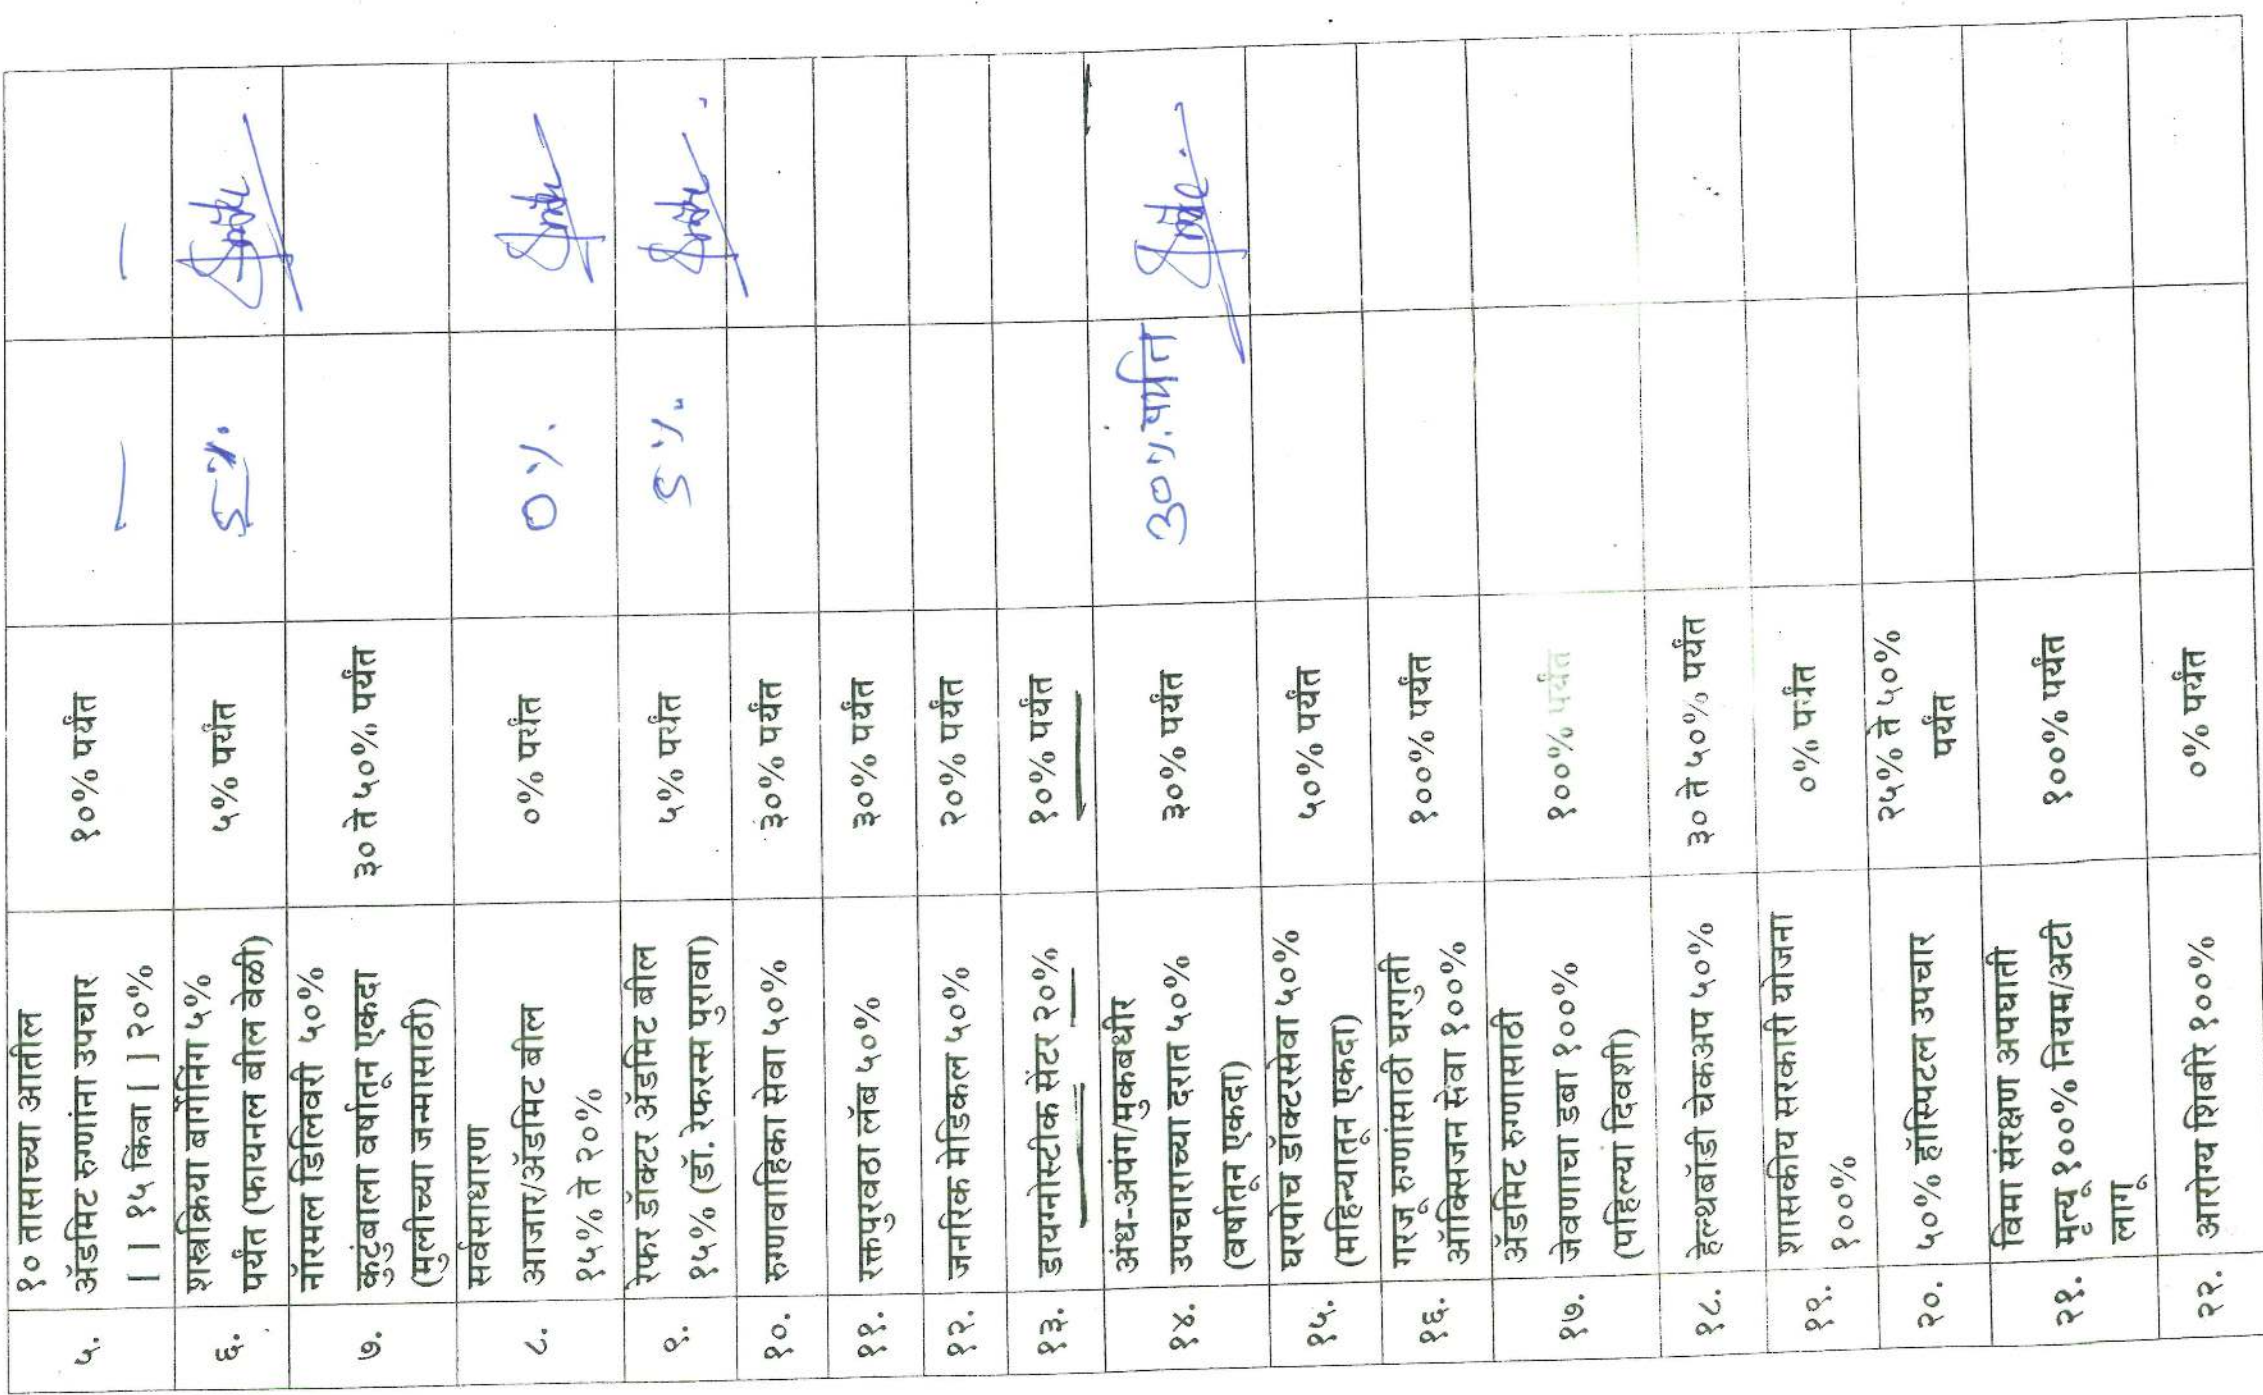 ५.
१० तासाच्या आतील
ॲडमिट रुग्णांना उपचार
[ ] १५ किंवा [ ] २०%
१०% पर्यंत
—
—
६.
शस्त्रक्रिया बार्गेनिंग ५%
पर्यंत (फायनल बील वेळी)
५% पर्यंत
5%.
७.
नॉरमल डिलिवरी ५०%
कुटुंबाला वर्षातून एकदा
(मुलीच्या जन्मासाठी)
३० ते ५०% पर्यंत
८.
सर्वसाधारण
आजार/ॲडमिट बील
१५% ते २०%
०% पर्यंत
0%.
९.
रेफर डॉक्टर ॲडमिट बील
१५% (डॉ. रेफरन्स पुरावा)
५% पर्यंत
5%.
१०.
रुग्णवाहिका सेवा ५०%
३०% पर्यंत
११.
रक्तपुरवठा लॅब ५०%
३०% पर्यंत
१२.
जनरिक मेडिकल ५०%
२०% पर्यंत
१३.
डायग्नोस्टीक सेंटर २०%
१०% पर्यंत
१४.
अंध-अपंग/मुकबधीर
उपचाराच्या दरात ५०%
(वर्षातून एकदा)
३०% पर्यंत
30%.पर्यंत
१५.
घरपोच डॉक्टरसेवा ५०%
(महिन्यातून एकदा)
५०% पर्यंत
१६.
गरजू रुग्णांसाठी घरगुती
ऑक्सिजन सेवा १००%
१००% पर्यंत
१७.
ॲडमिट रुग्णासाठी
जेवणाचा डबा १००%
(पहिल्या दिवशी)
१००% पर्यंत
१८.
हेल्थबॉडी चेकअप ५०%
३० ते ५०% पर्यंत
१९.
शासकीय सरकारी योजना
१००%
०% पर्यंत
२०.
५०% हॉस्पिटल उपचार
२५% ते ५०%
पर्यंत
२१.
विमा संरक्षण अपघाती
मृत्यू १००% नियम/अटी
लागू
१००% पर्यंत
२२.
आरोग्य शिबीरे १००%
०% पर्यंत